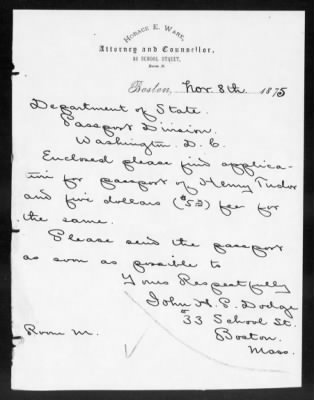 HORACE E. WARE,
Attorney and Counsellor,
33 SCHOOL STREET,
Room M.
Boston, Nov. 8th 1875
Department of State.
Passport Division.
Washington. D. C.
Enclosed please find applica-
tion for passport of Henry Tudor
and five dollars ($5⁰⁰) fee for
the same.
Please send the passport
as soon as possible to
Yours Respectfully
John H. P. Dodge
33 School St.
Room M.
Boston.
Mass.